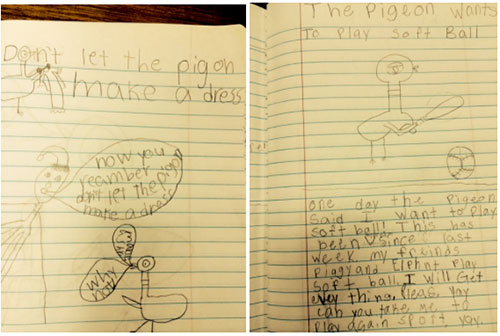 Don't let the pigon
make a dress
now you
reamber
don't let the pigon
make a dress
The Pigeon Wants
To Play Soft Ball
one day the Pigeon
Said I want to Play
soft ball! This has
been since last
week my friends
Piggy and Elphnt Play
Soft ball I will Get
evey thing, Pleas, Yay
can you take me to
Play again Sport yay.